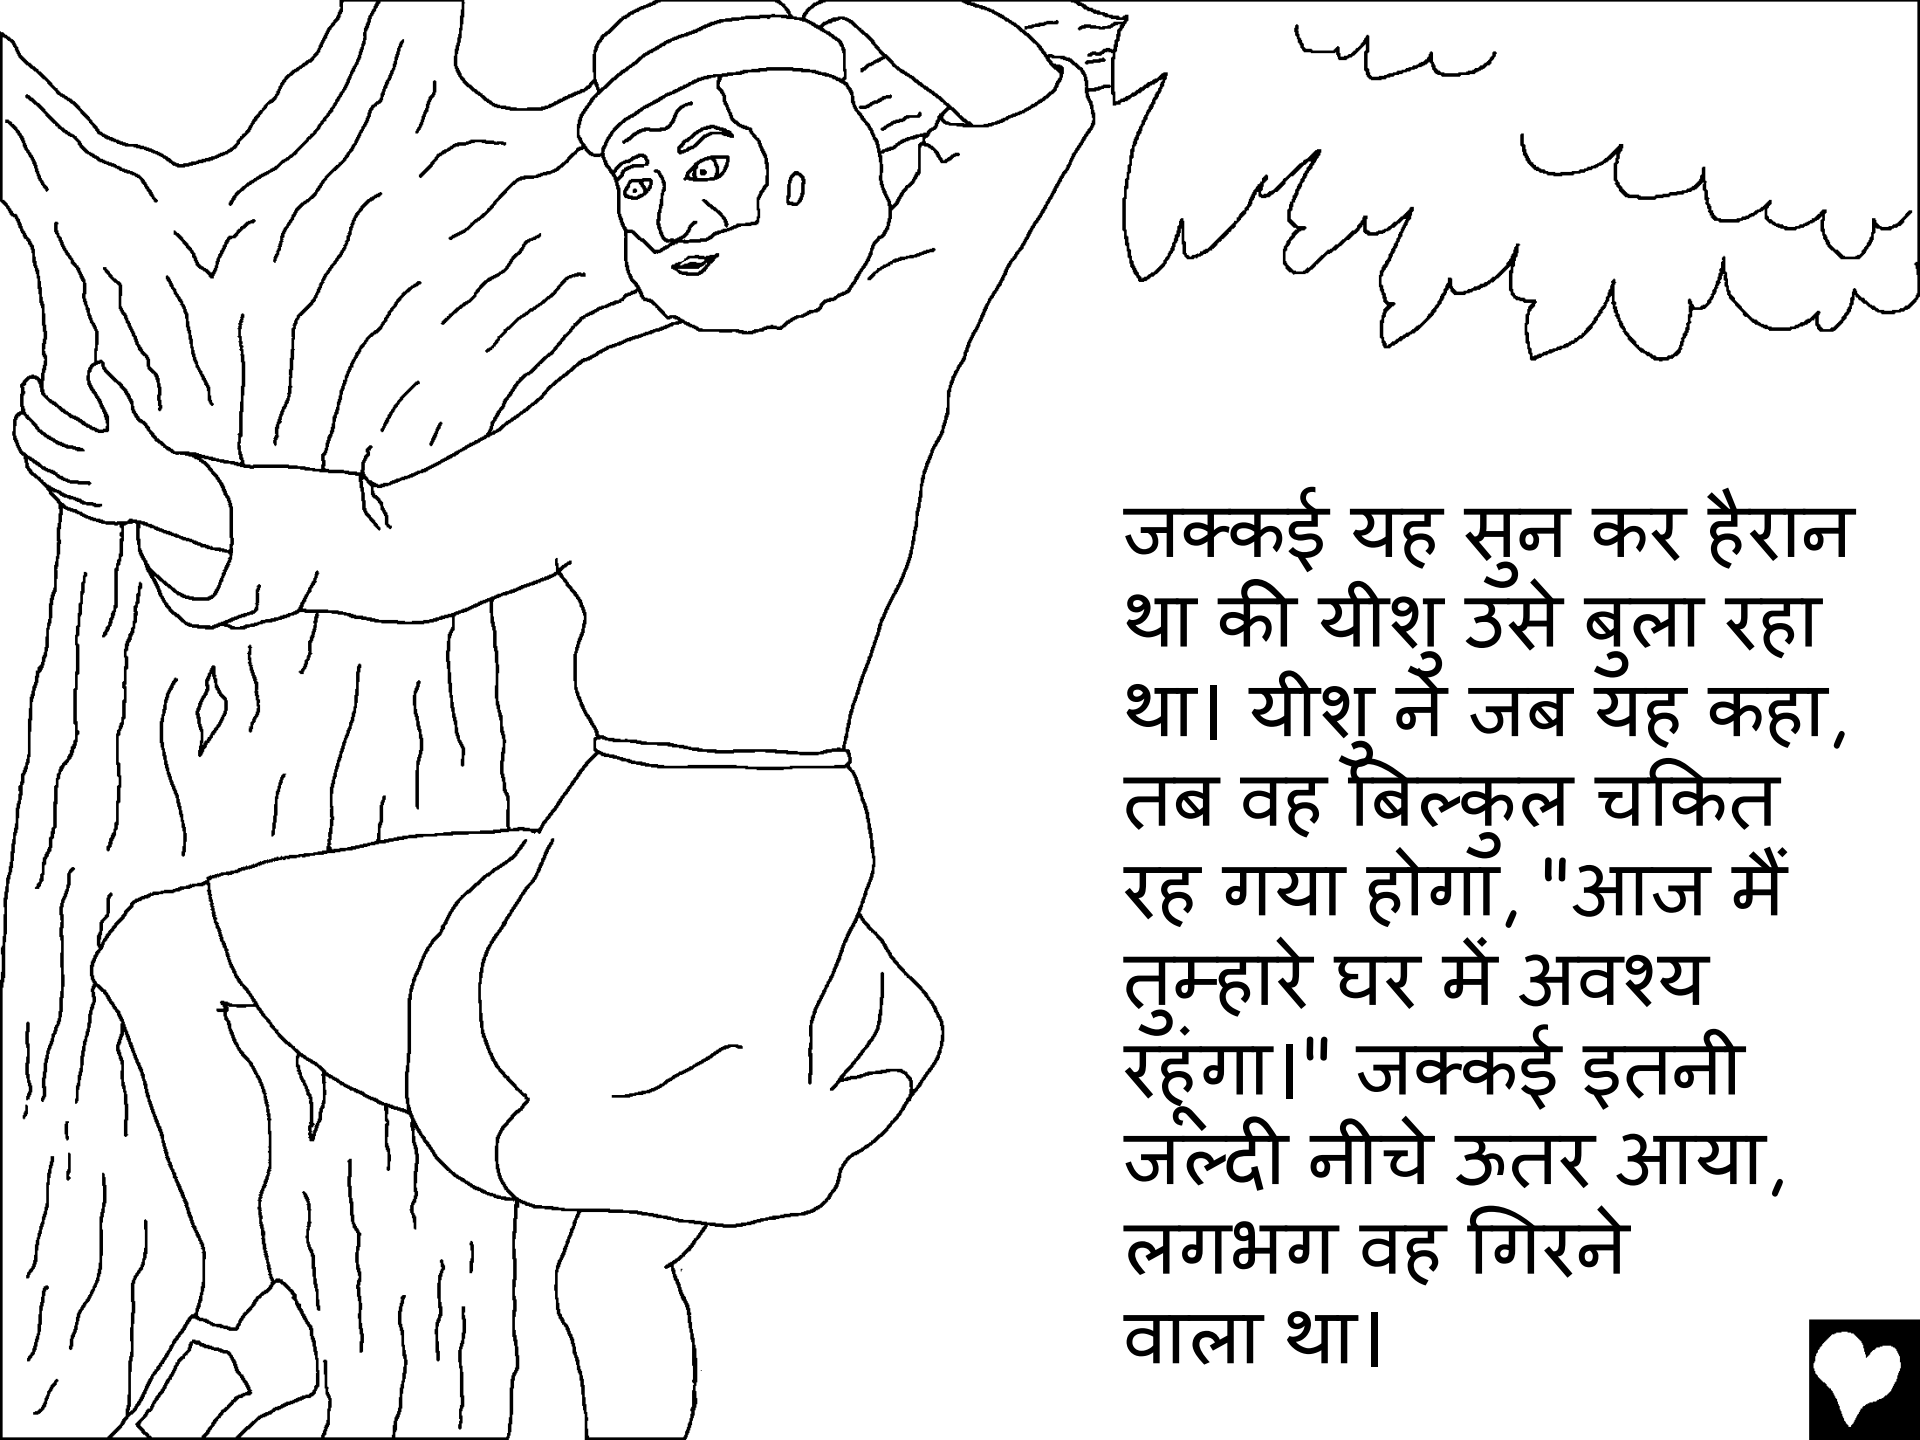 जक्कई यह सुन कर हैरान
था की यीशु उसे बुला रहा
था। यीशु ने जब यह कहा,
तब वह बिल्कुल चकित
रह गया होगा, "आज मैं
तुम्हारे घर में अवश्य
रहूंगा।" जक्कई इतनी
जल्दी नीचे ऊतर आया,
लगभग वह गिरने
वाला था।